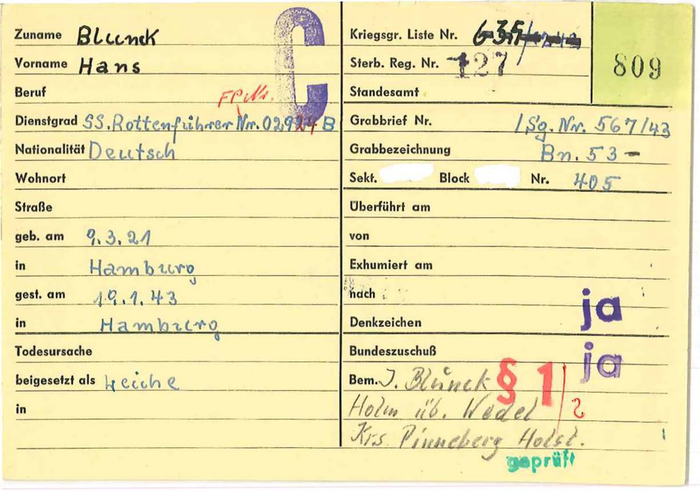 Zuname Blunck
Vorname Hans
Beruf
FP.Nr.
Dienstgrad SS.Rottenführer Nr. 02924 B
Nationalität Deutsch
Wohnort
Straße
geb. am 9.3.21
in Hamburg
gest. am 19.1.43
in Hamburg
Todesursache
beigesetzt als Leiche
in
C
Kriegsgr. Liste Nr.
Sterb. Reg. Nr. 127
Standesamt
809
Grabbrief Nr. 1Sg. Nr. 567/43
Grabbezeichnung Bn. 53 -
Sekt. Block Nr. 405
Überführt am
von
Exhumiert am
nach
Denkzeichen ja
Bundeszuschuß ja
Bem. J. Blunck § 1/2
Holm üb. Wedel
Krs. Pinneberg Holst.
geprüft